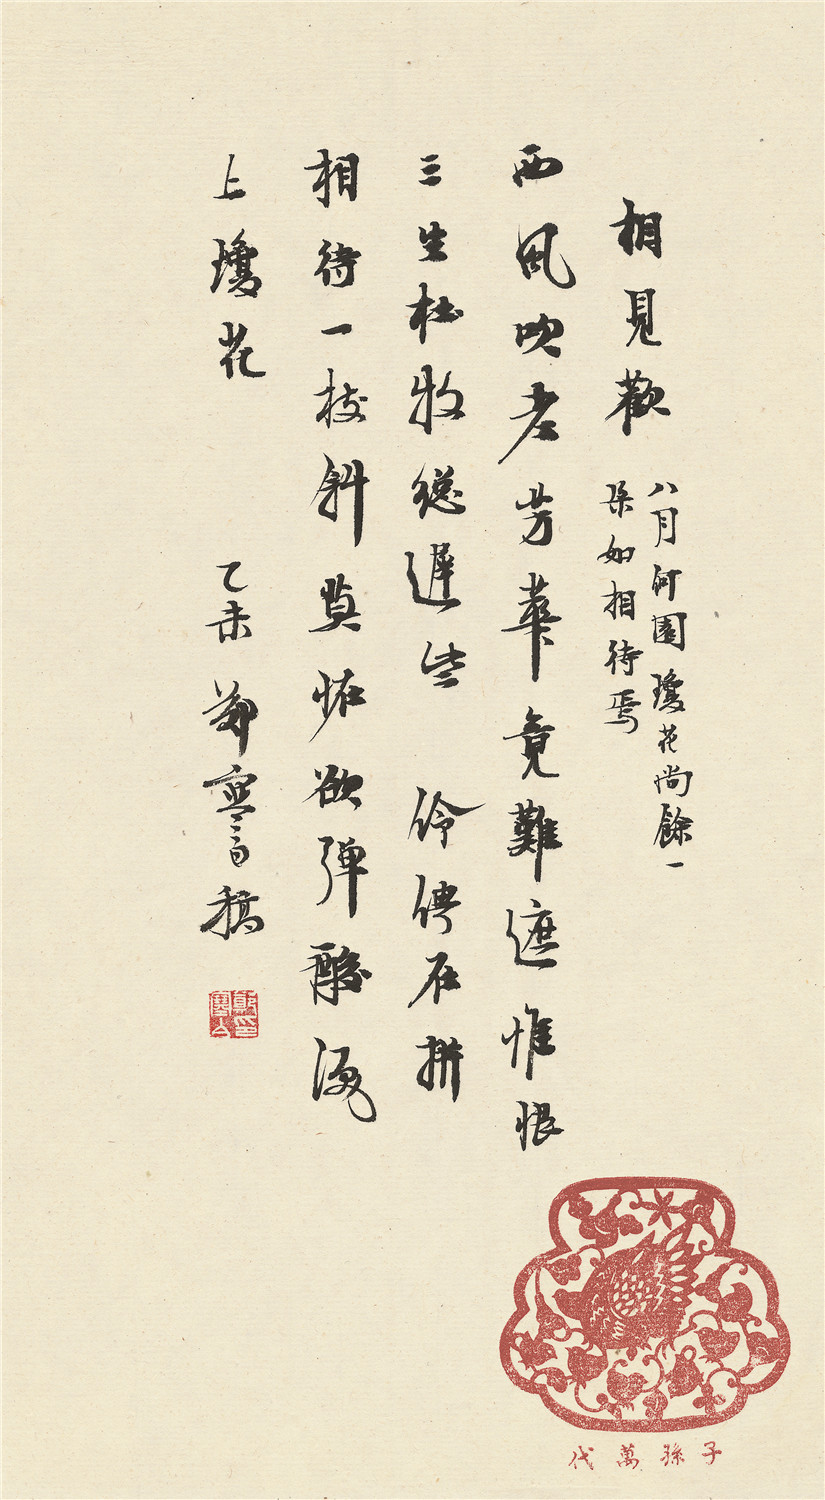 相見歡
八月何園瓊花尚餘一
朵如相待焉
西風吹老芳華竟難遮惟恨
三生杜牧總遲些 伶俜在拚
相待一枝斜莫怪欲彈酸淚
上瓊花
乙未 鄭稿
子孫萬代